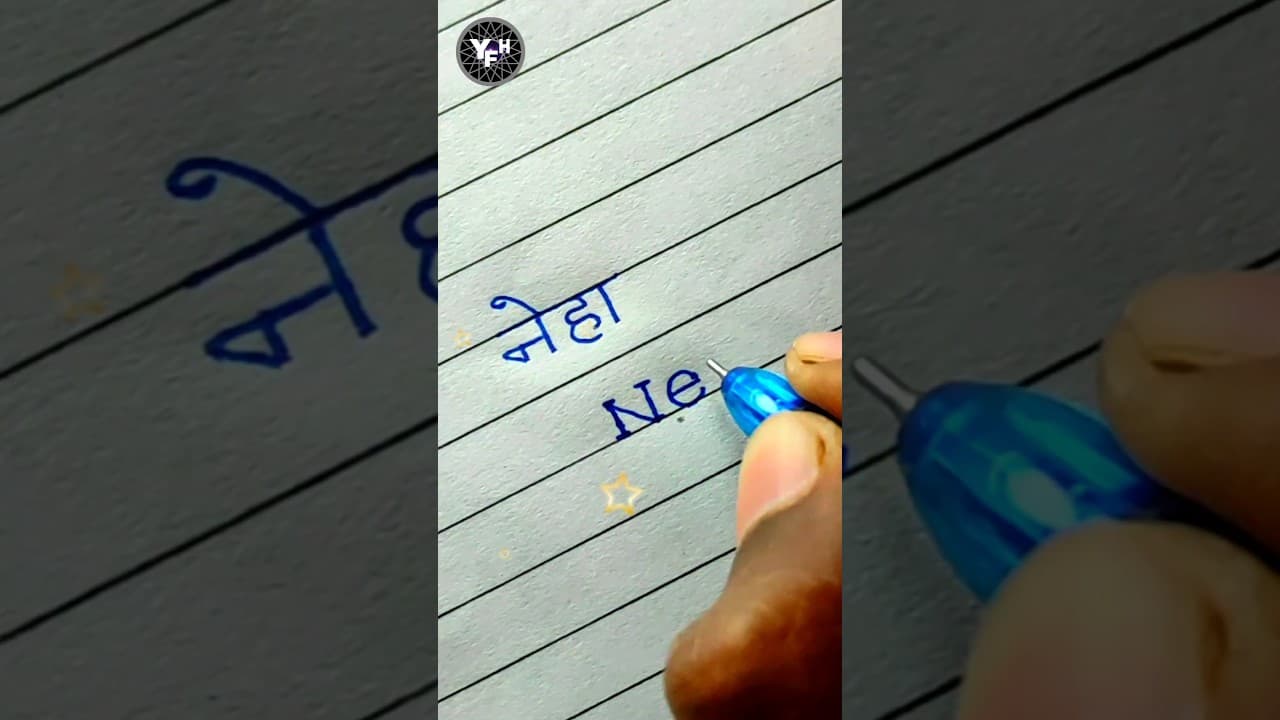 YFH
नेहा
Ne